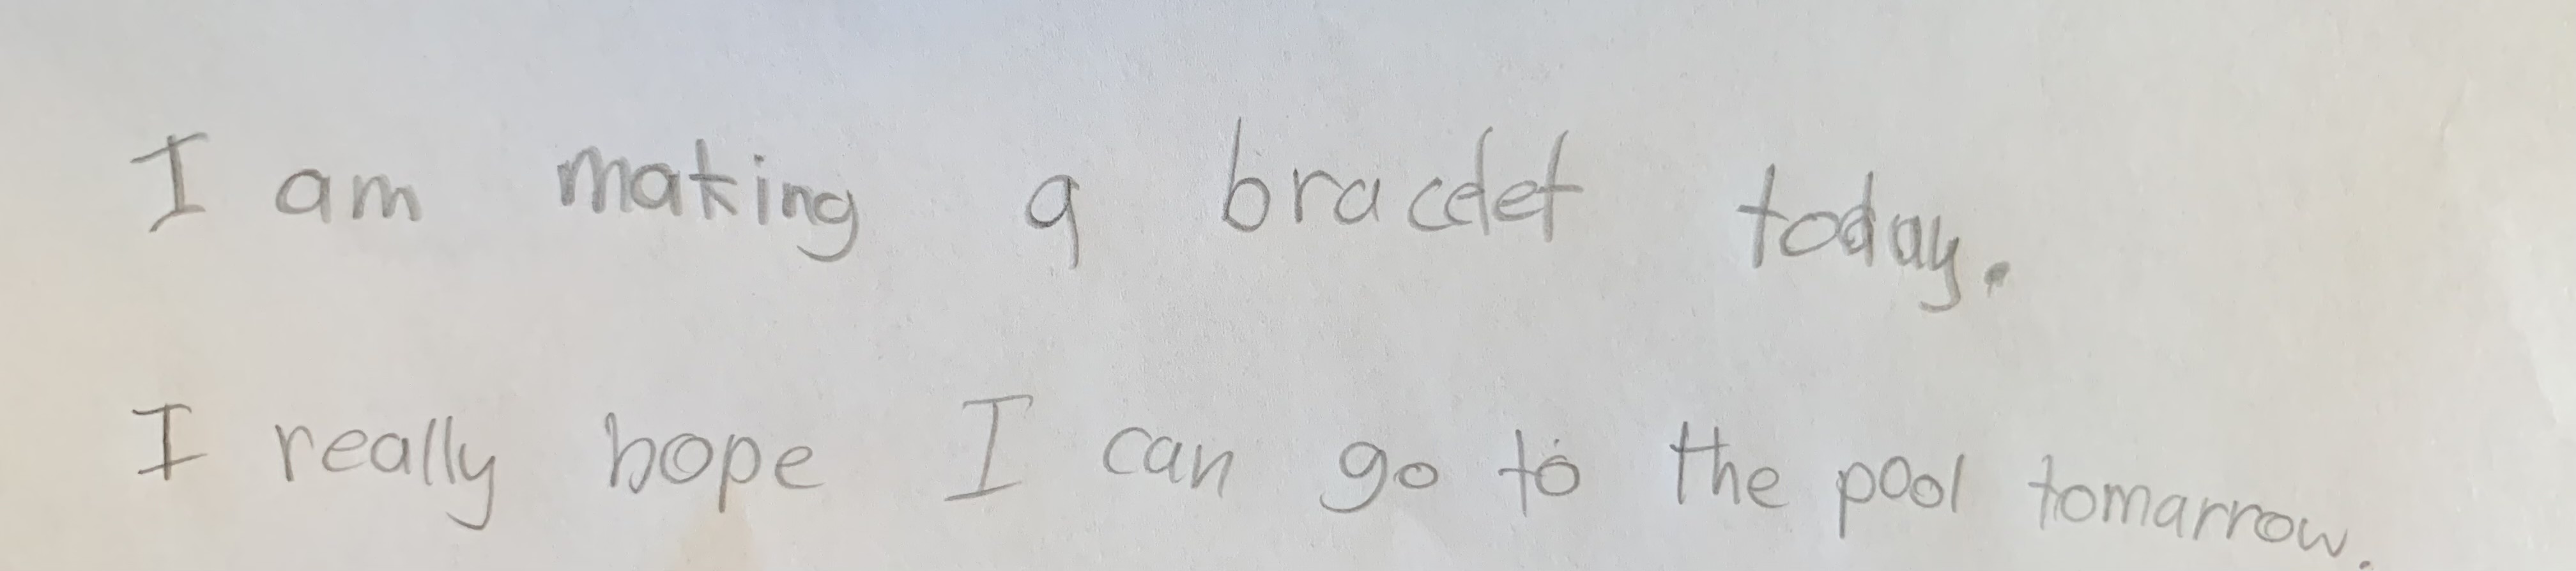 I am making a bracelet today.
I really hope I can go to the pool tomarrow.